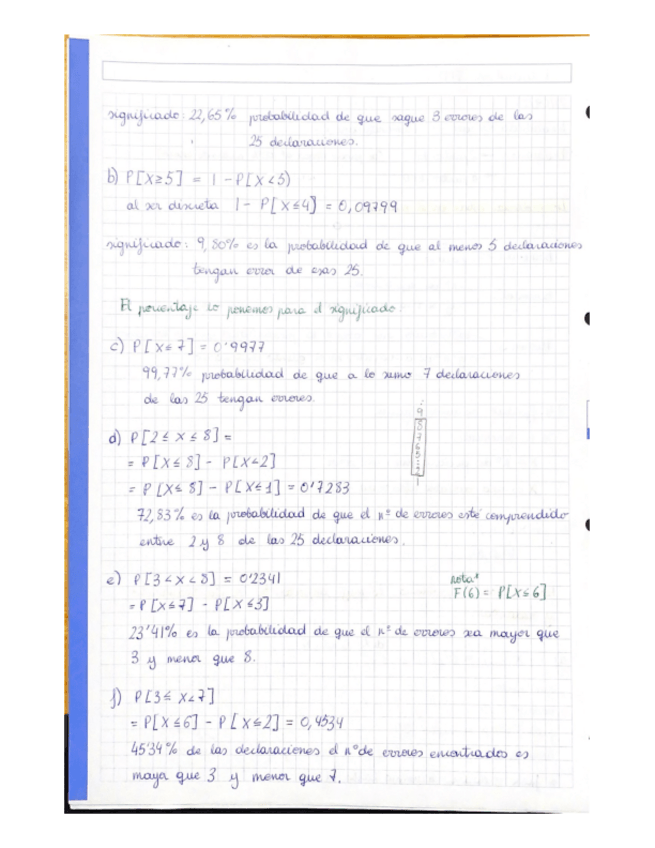 significado: 22,65% probabilidad de que saque 3 errores de las
25 declaraciones.
b) P[X≥5] = 1 - P(X<5)
al ser discreta 1 - P[X≤4] = 0,09799
significado: 9,80% es la probabilidad de que al menos 5 declaraciones
tengan error de esas 25.
El porcentaje lo ponemos para el significado.
c) P[X≤7] = 0'9977
99,77% probabilidad de que a lo sumo 7 declaraciones
de las 25 tengan errores.
d) P[2 ≤ X ≤ 8] =
= P[X≤8] - P[X<2]
= P[X≤8] - P[X≤1] = 0'7283
72,83% es la probabilidad de que el nº de errores esté comprendido
entre 2 y 8 de las 25 declaraciones.
e) P[3 < X < 8] = 0'2341
= P[X≤7] - P[X≤3]
nota*
F(6) = P[X≤6]
23'41% es la probabilidad de que el nº de errores sea mayor que
3 y menor que 8.
f) P[3 ≤ X < 7]
= P[X≤6] - P[X≤2] = 0,4534
45'34% de las declaraciones el nº de errores encontrados es
mayor que 3 y menor que 7.